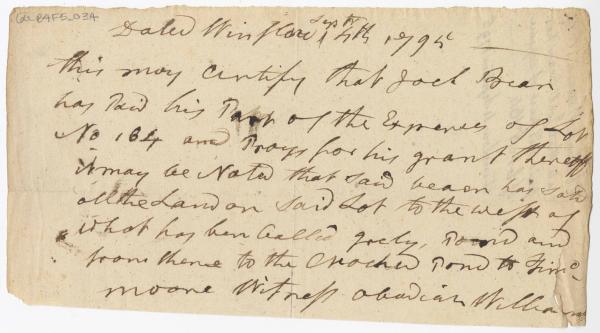 Dated Winslow Sept 14th 1795
this may Certify that Joel Bean
has Paid his Part of the Expenses of Lot
No 164 and Prays for his grant thereof
it may be Noted that said bean has sold
all the Land on said Lot to the west of
what has ben Called Pond and
from thence to the Crocked Pond to
moore Witness obadiah Williams